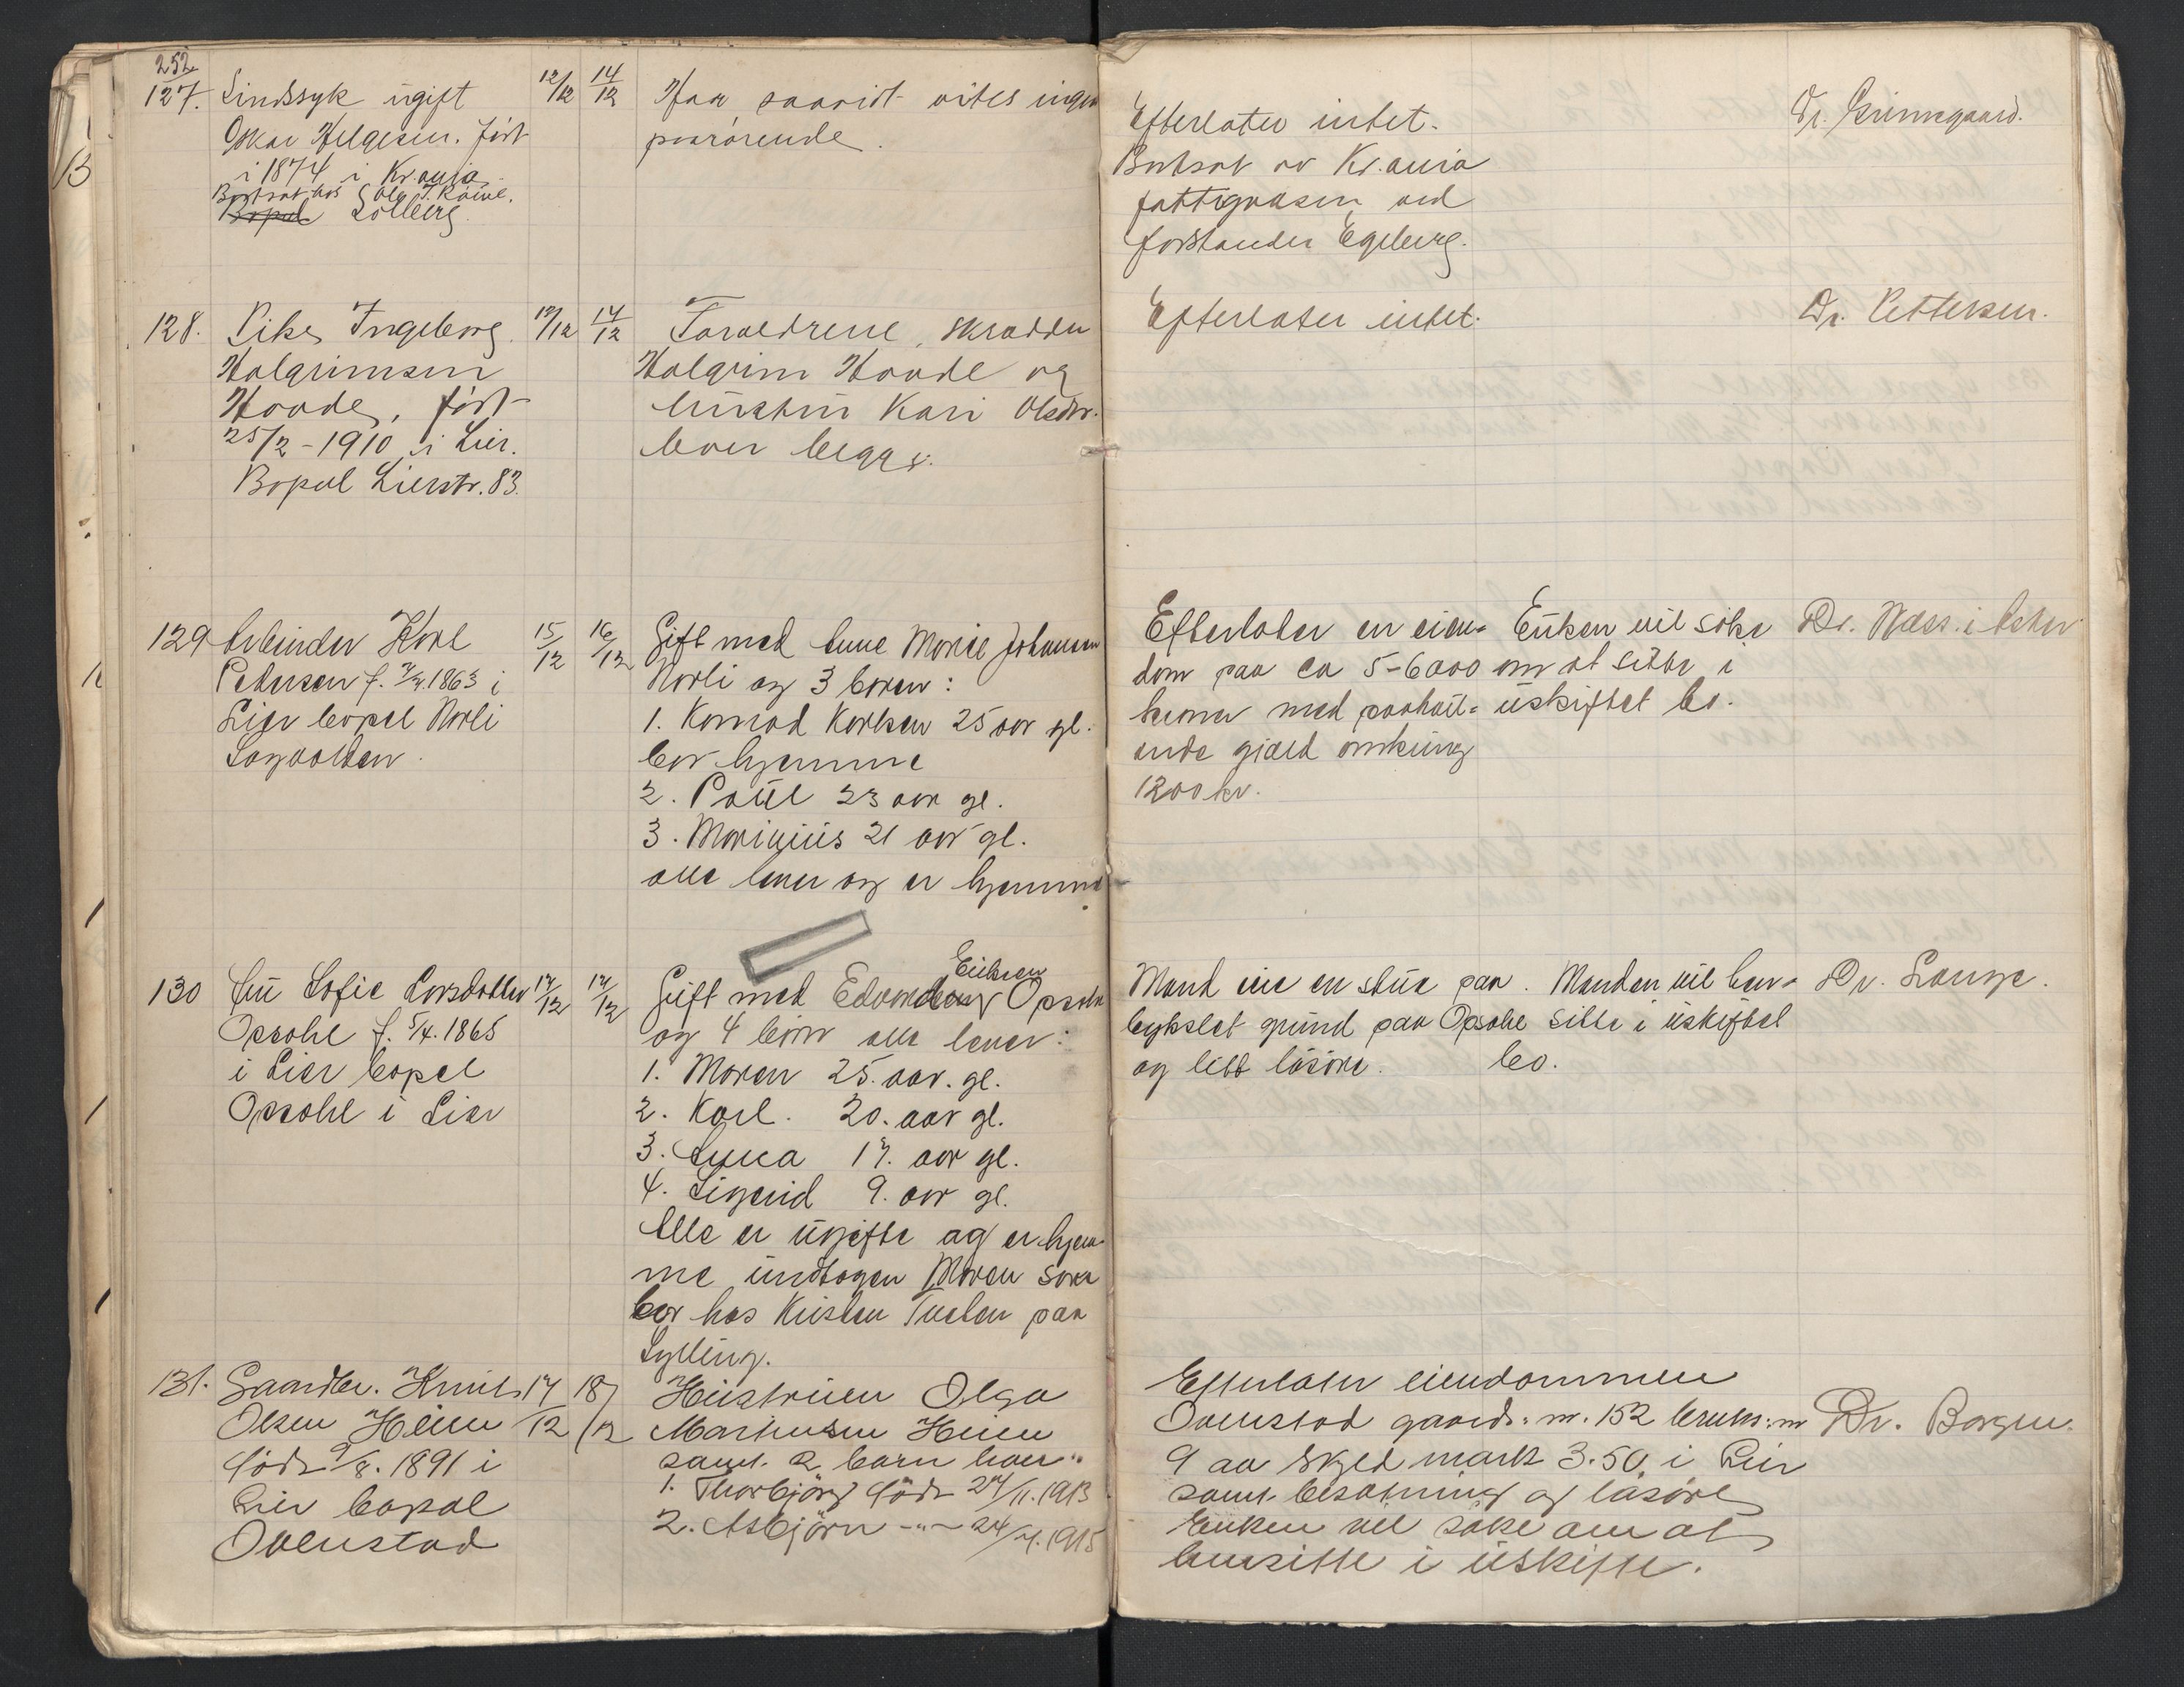 252
127. Sindssyk ugift 12/12 14/12 Haa saavidt vites ingen
Oskar Helgesen. født paarørende.
i 1874 i Kr.ania
Bortsat hos Ole T.
Bopæl Solberg.
Efterlater intet. Dr.
Bortsat av Kr.ania
fattigvæsen ved
forstander Egeberg.
128. Pike Ingeborg 12/12 14/12 Foraldrene, skrædder
Halgrimsen Halgrim Haade og
Haade, født hustru Kari Olsdtr.
25/2-1910 i Lier. lever begge.
Bopæl Lierstr. 83.
Efterlater intet. Dr. Pettersen.
129 Arbeider Karl 15/12 16/12 Gift med Anne Marie Johansen
Petersen f. 1863 i Norli og 3 børn:
Lier bopæl Norli 1. Konrad Karlsen 25 aar gl.
bor hjemme
2. Paul 23 aar gl.
3. Marinius 21 aar gl.
alle lever og er hjemme
Efterlater en eien= Enken vil søke Dr. Næss i Asker
dom paa ca 5-6000 om at sitte i
kroner med paahvil= uskiftet bo.
ende gjæld omkring
1200 kr.
130 Fru Sofie Larsdatter 12/12 Gift med Edvard Eriksen Opsahl
Opsahl f. 5/4. 1865 og 4 børn alle lever:
i Lier bopæl 1. Maren 25. aar. gl.
Opsahl i Lier 2. Karl. 20. aar gl.
3. Anna 17. aar gl.
4. Sigurd 9. aar gl.
Alle er ugifte og er hjem=
me undtagen Maren som
bor hos Kristen Tveten paa
Sylling.
Mand eie en stue paa Manden vil hen= Dr. Lange.
bykslet grund paa Opsahl sitte i uskiftet
og litt løsøre. bo.
131. Gaardbr. Knut 17/12 18/12 Hustruen Olga
Olsen Heien Mathisen Heien
født 9/8. 1891 i samt. 2 barn
Lier bopæl 1. Thorbjørg født 27/11. 1913
Ovenstad 2. Asbjørn -"- 24/4. 1915
Efterlater eiendommen
Ovenstad gaards. nr. 152 bruks. nr Dr. Borgen.
9 av skyld mark 3.50. i Lier
samt. besætning og løsøre
Enken vil søke om at
hensitte i uskifte.